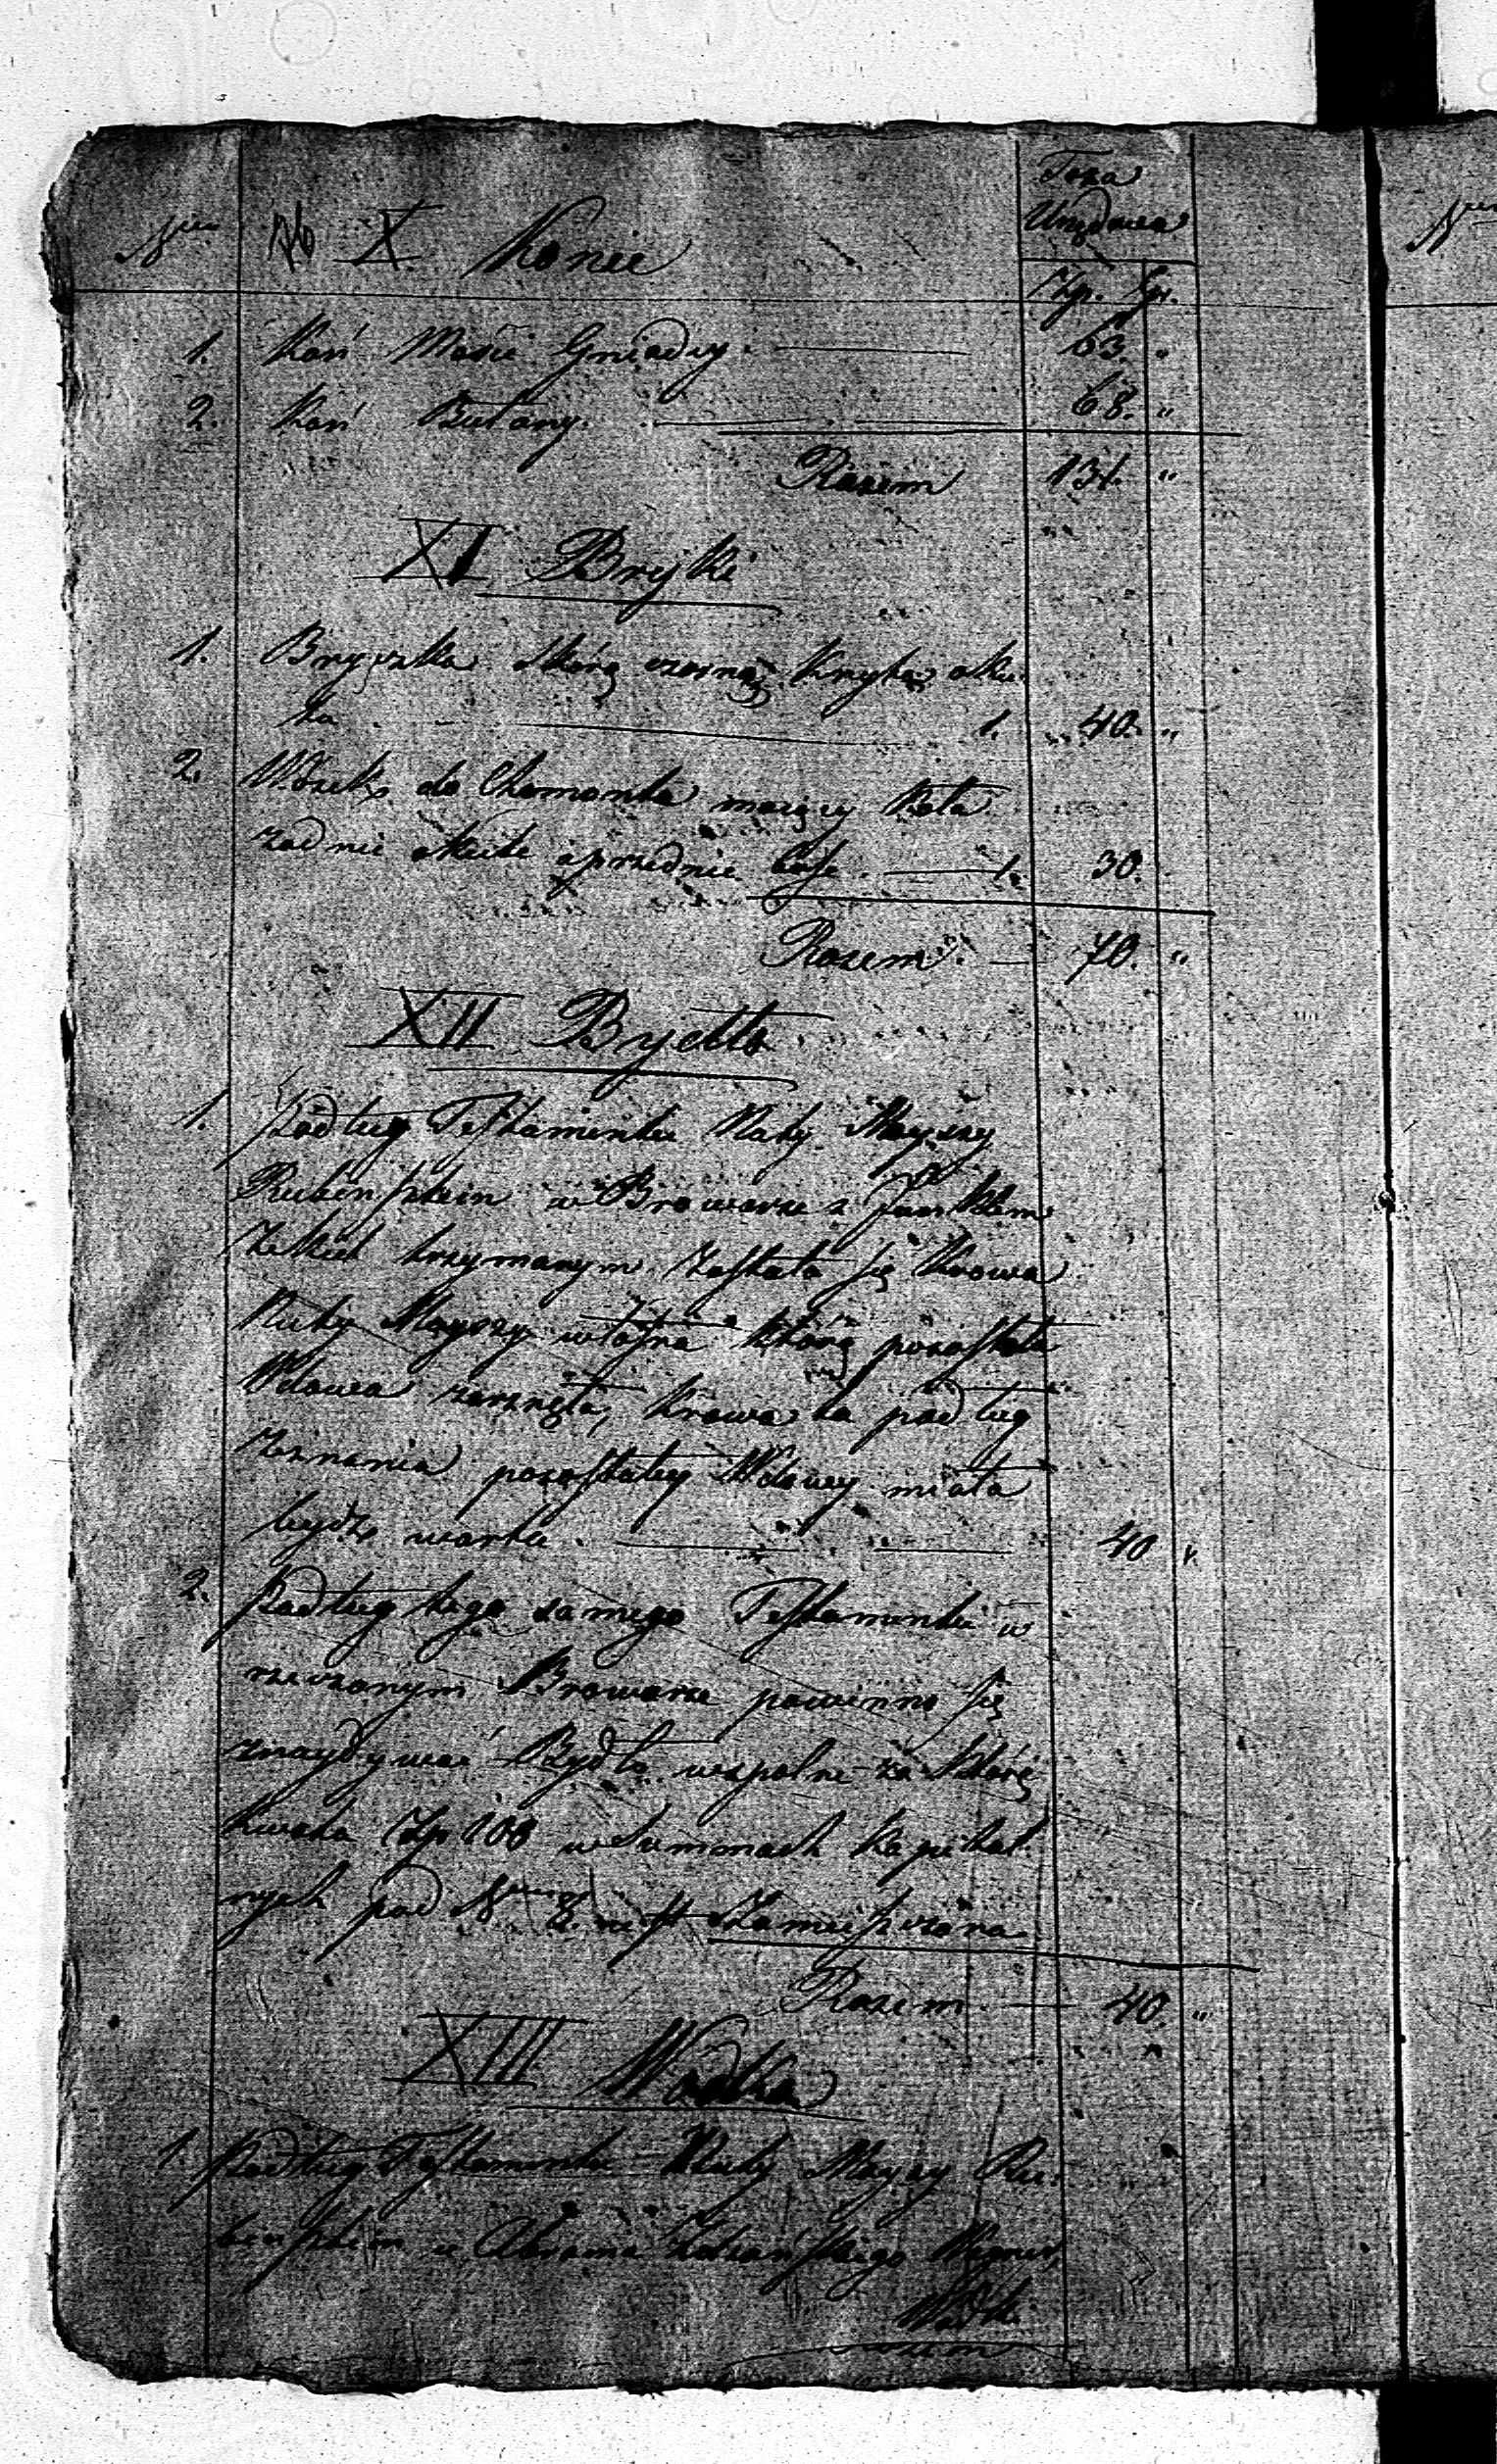 Taxa
Urzędowa
Nro X Konie
Złp. Gr.
1. Koń Maści Gniady. 63. "
2. Koń Bułany. 68. "
Razem 131. "
XI Bryki
1. Bryczka skórą czarną kryta, oku
ta 1. 40. "
2. Wózek do Chomonta maiący koła
zadnie okute a przednie bose. 1. 30.
Razem. 70. "
XII Bydło
1. Podług Testamentu Nuty Mayszy
Rubinsztein w Browarze z Janklem
trzymanym została się krowa
Nuty Mayszy własna którą pozostała
Wdowa zarznęła, krowa ta podług
zeznania pozostałey Wdowy miała
bydź warta. 40 "
2. Podług tego samego Testamentu w
rzeczonym Browarze powinno się
znaydywać Bydło wspólne za które
kwota Złp 100 w Summach kapital
nych pod Nrem 8. iest zamieszczona
Razem. 40. "
XIII Wódka
1. Podług Testamentu Nuty Mayszy Ru
binsztein u Abrama
Wódki